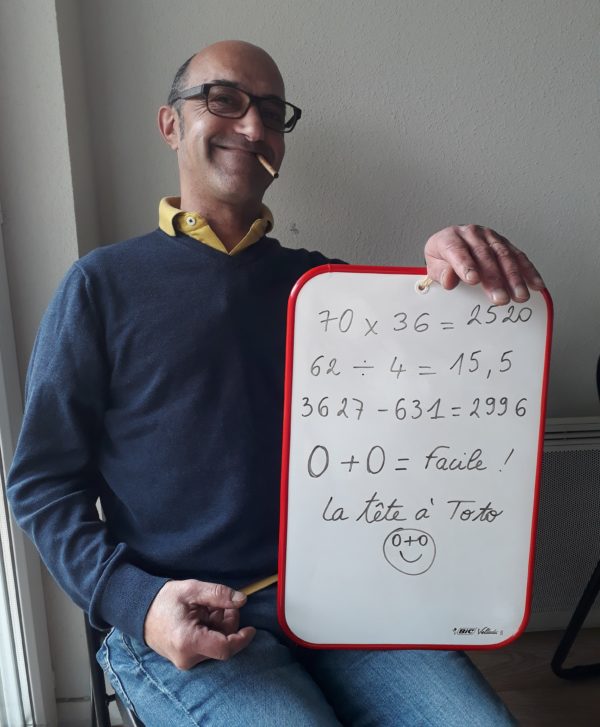 70 x 36 = 2520
62 ÷ 4 = 15,5
3627 - 631 = 2996
0 + 0 = Facile !
La tête à Toto
0+0
BIC Velleda